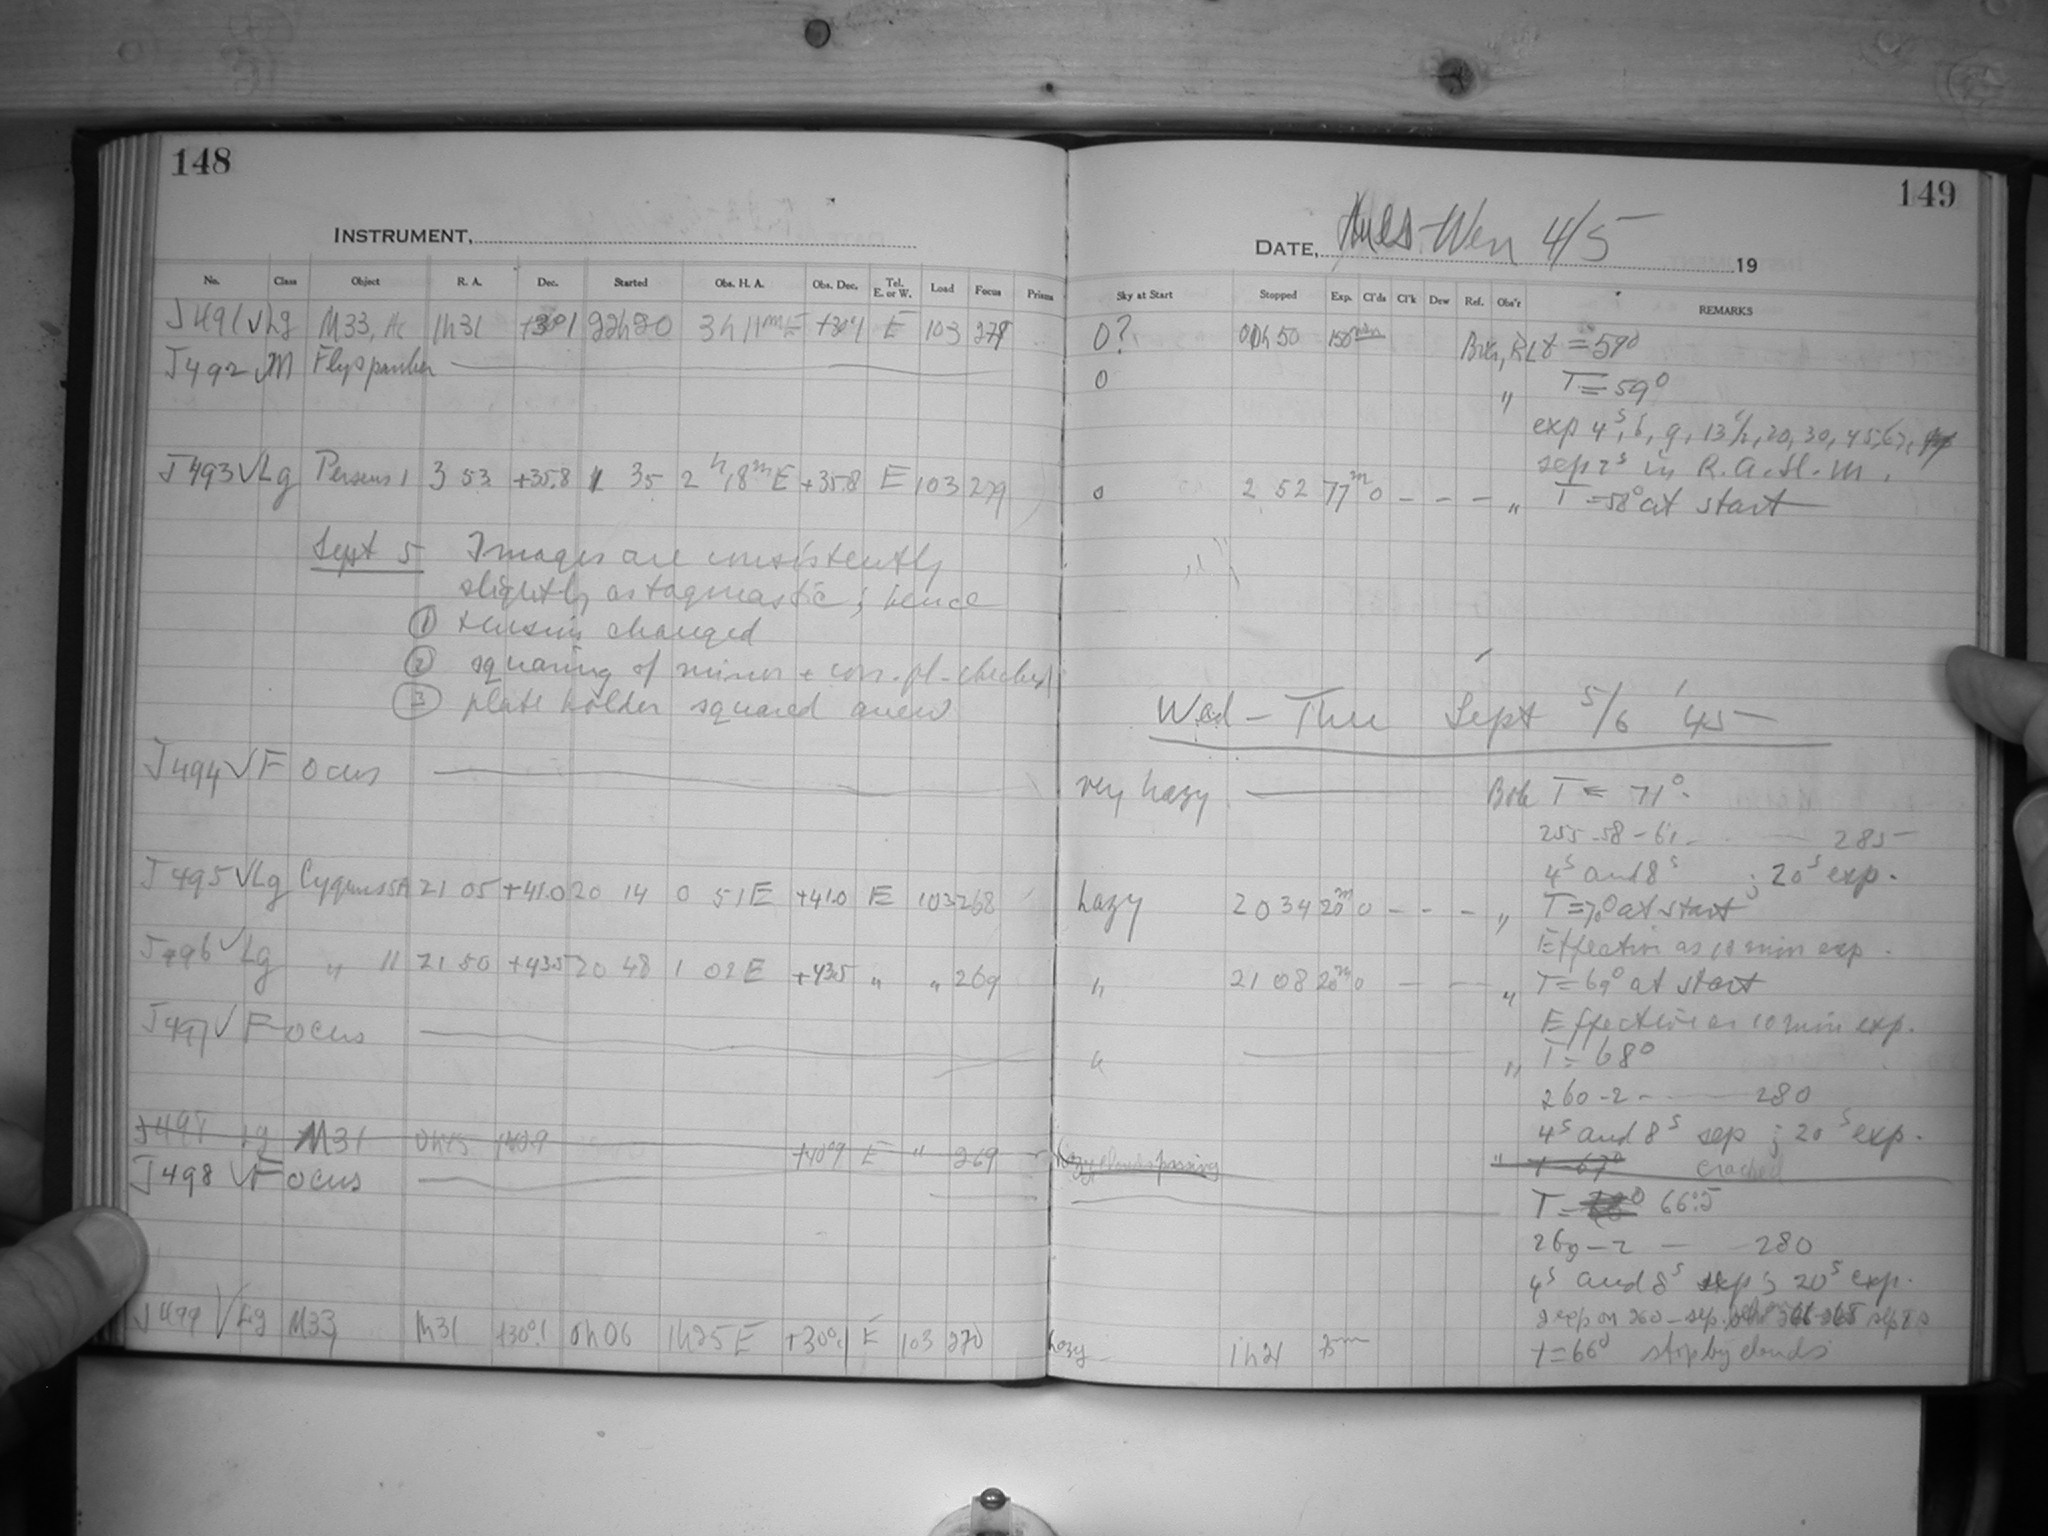 148
149
INSTRUMENT,
DATE, Tues-Wen 4/5 19
No. Class Object R. A. Dec. Started Obs. H. A. Obs. Dec. Tel. E. or W. Load Focus Prisms Sky at Start Stopped Exp. Cl'ds Cl'k Dew Ref. Obs'r REMARKS
J491 √ Lg M33, Ac 1h31 +30°1 22h20 3h11m E +30°1 E 103 278 0? 00h50 150min t = 59°
J492 √ M Flyspanker 0 " T = 59°
exp 4s, 6, 9, 13½, 20, 30, 45, 67,
sep 2s in R.A. H. M.
J493 √ Lg Perseus 1 3 53 +35.8 1 35 2h 18m E +35.8 E 103 279 0 2 52 77m 0 - - - " T = 58° at start
Sept 5 Images are consistently
slightly astagmastic; hence
① tension changed
② squaring of mirror + corr. pl. checked
③ plate holder squared anew
Wed - Thu Sept 5/6 '45
J494 √ Focus very hazy Bok T = 71°.
255-58-61 - 285
4s and 8s ; 20s exp.
J495 √ Lg Cygnus 5A 21 05 +41.0 20 14 0 51 E +41.0 E 103 268 hazy 20 34 20m 0 - - - " T = 70° at start
Effective as 10 min exp.
J496 √ Lg " 11 21 50 +43.5 20 48 1 02 E +43.5 " " 269 " 21 08 20m 0 - - - " T = 69° at start
Effective as 10 min exp.
J497 √ Focus " " T = 68°
260-2 - 280
4s and 8s sep ; 20s exp.
J498 Lg M31 0h45 +40.9 +40°9 E " 269 hazy clouds passing " t = 67° cracked
J498 √ Focus T = 66°.5
260-2 - 280
4s and 8s sep ; 20s exp.
2 exp on 260 - sep.
J499 √ Lg M33 1h31 +30°1 0h06 1h25 E +30°1 E 103 270 hazy 1h21 75m t = 66° stop by clouds